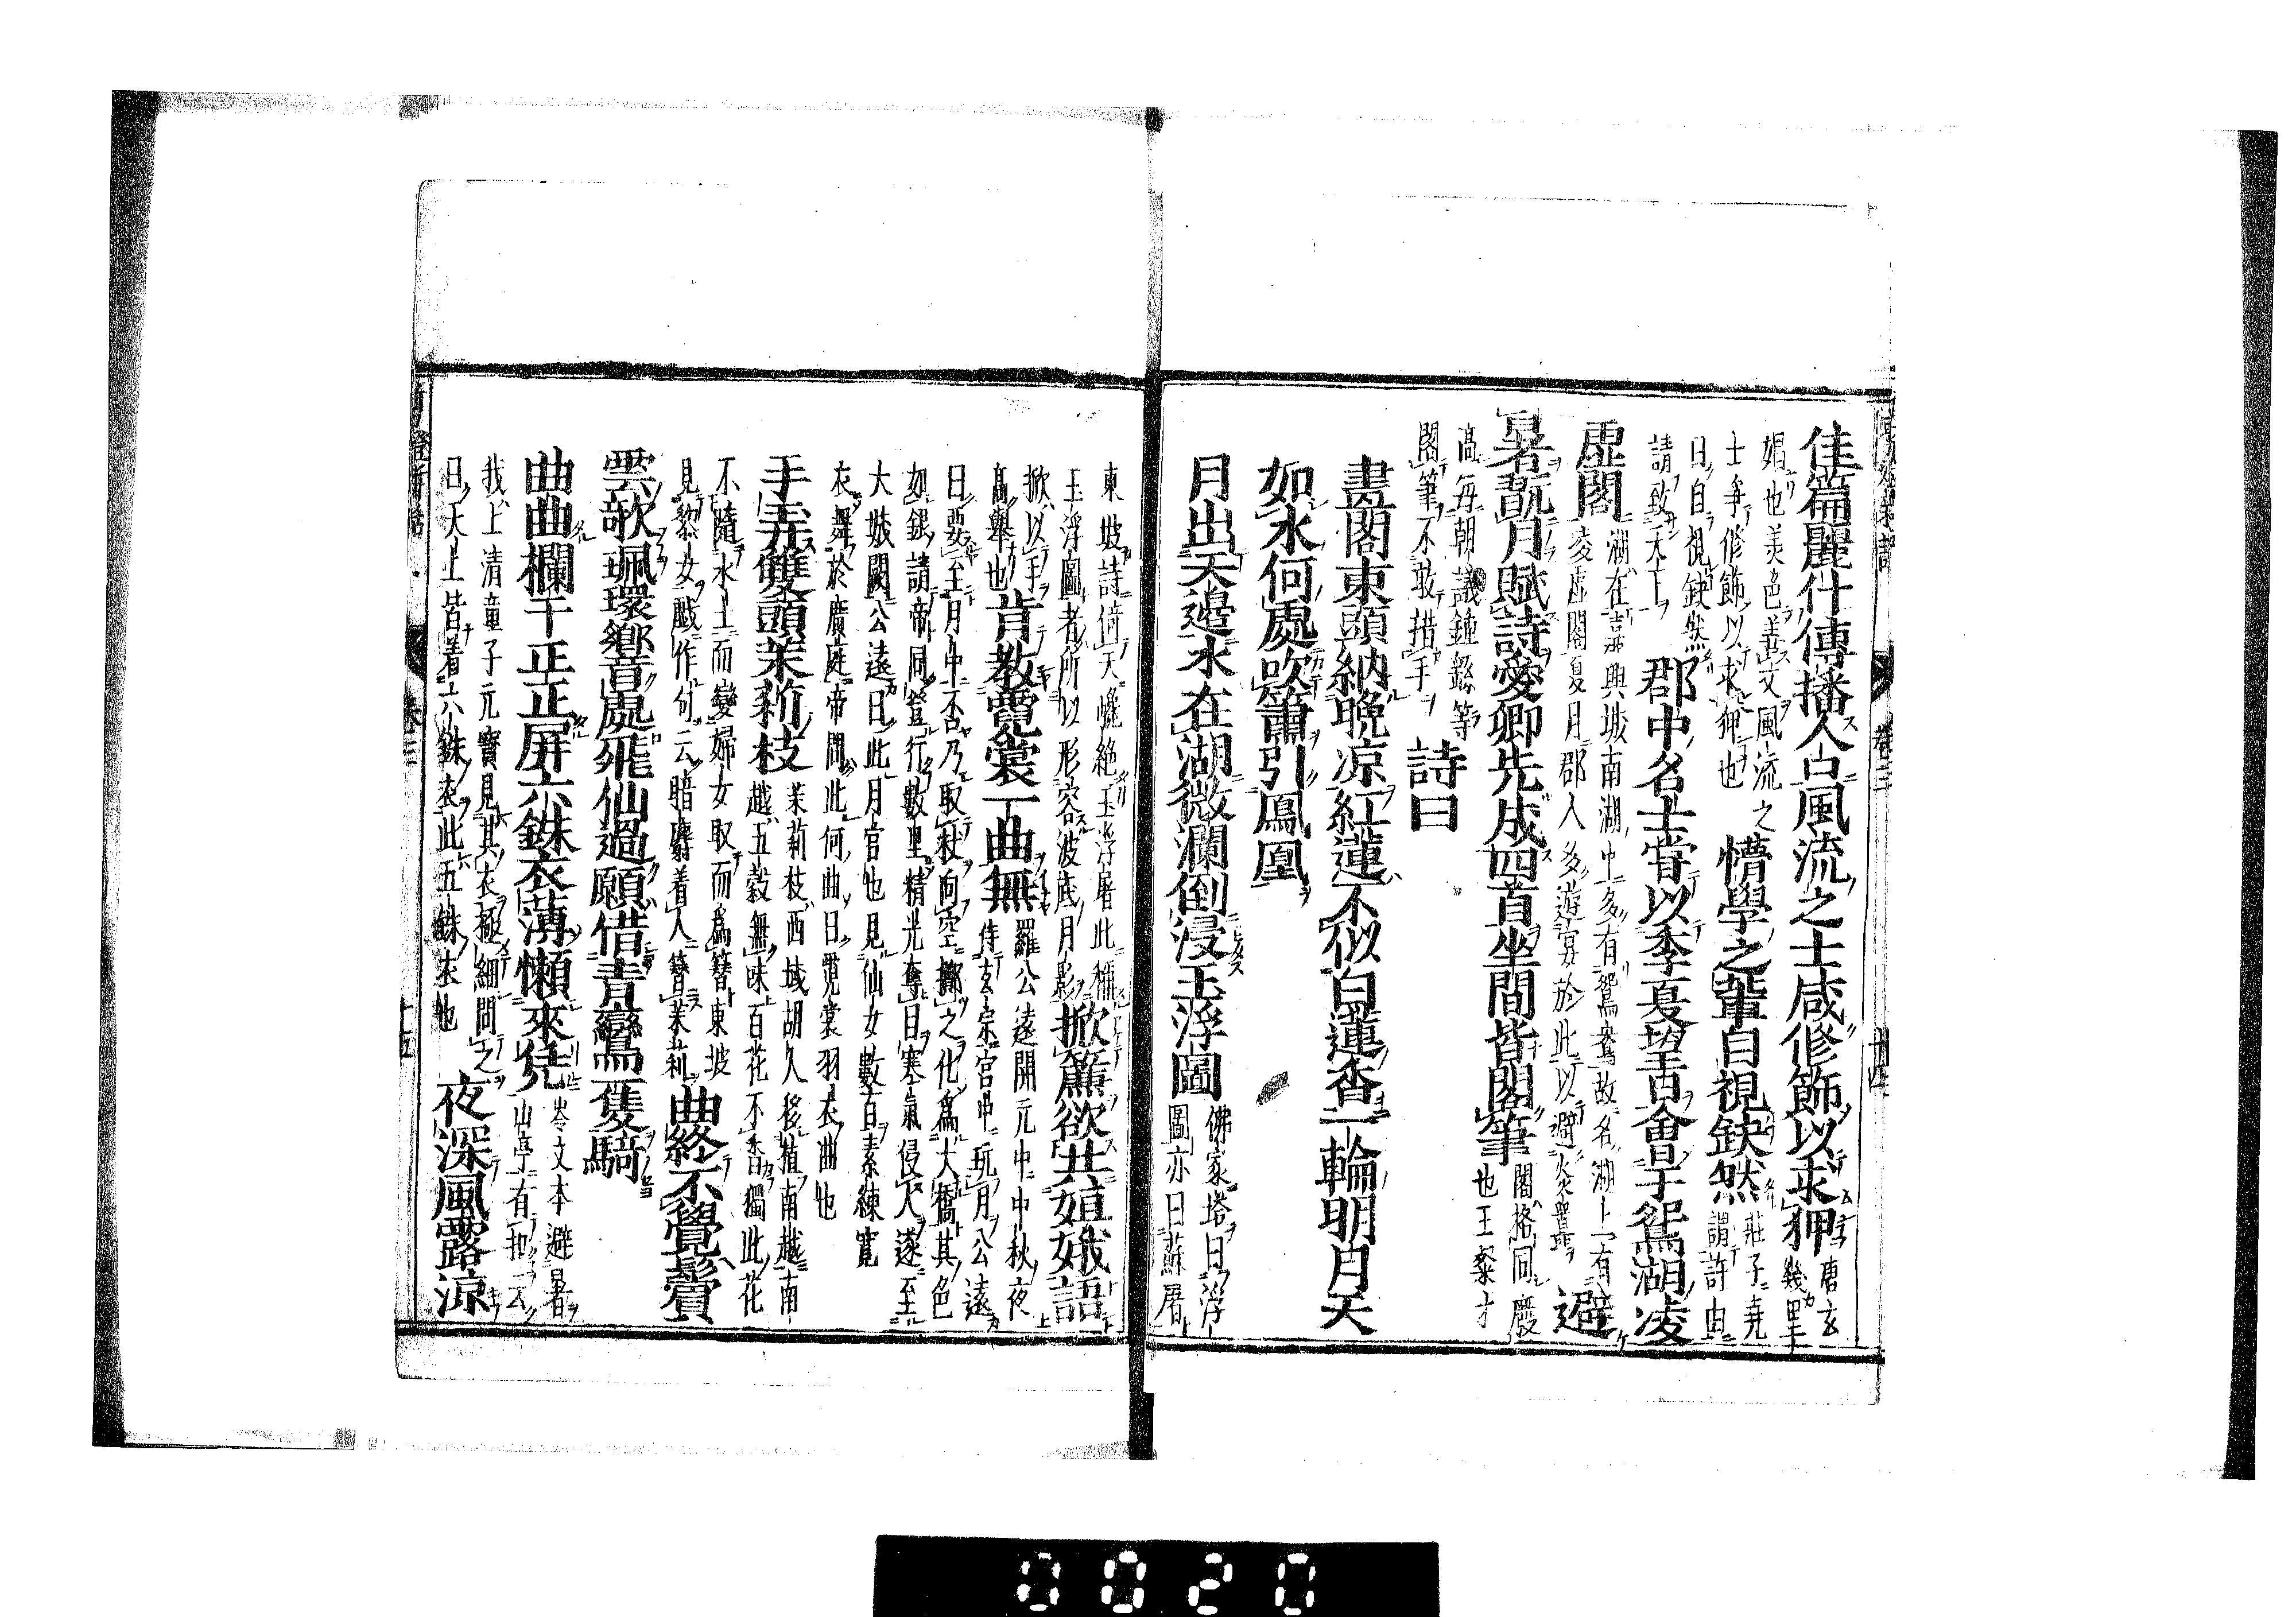 佳篇麗什傳播人口風流之士咸修飾以求狎唐玄幾里
娼也美色善文風流之士爭修飾以求狎也
之懵學之輩自視缺然莊子堯謂許由
曰自視缺然請致天下
郡中名士嘗以季夏望日會于鴛湖凌
虛閣湖在嘉興城南湖中多有鴛鴦故名湖上有凌虛閣夏月郡人多遊宴於此以避炎暑
避
暑翫月賦詩愛卿先成四首坐間皆閣筆閣格同慶也王粲才
高每朝議鍾繇等閣筆不敢措手
詩曰
畫閣東頭納晚凉紅蓮不似白蓮香一輪明月天
如水何處吹簫引鳳凰
月出天邊水在湖微瀾倒浸玉浮圖佛家塔曰浮圖亦曰蘇屠
東坡詩倚天巉絶玉浮屠此稱玉浮圖者所以形容波底月影
掀簾欲共姮娥語
掀以手高舉也
肯教霓裳一曲無羅公遠開元中中秋夜侍玄宗宮中玩月公遠
曰要至月中否乃取杖向空擲之化為大橋其色如銀請帝同登行數里精光奪目寒氣侵人遂至
大城闕公遠曰此月宮也見仙女數百素練寬衣舞於廣庭帝問此何曲曰霓裳羽衣曲也
手弄雙頭茉莉枝茉莉枝西域胡人移植南越南越五穀無味百花不香獨此花
不隨水土而變婦女取而為簪東坡見黎女戲作句云暗麝着人簪茉莉
曲終不覺鬢
雲欹珮環響處飛仙過願借青鸞一隻騎
曲曲欄干正正屏六銖衣薄懶來凭岑文本避暑山亭有扣云
我上清童子元寶見其衣極細問之曰天上皆着六銖衣此五銖衣也
夜深風露涼
卷三
十四
卷三
十五
0020